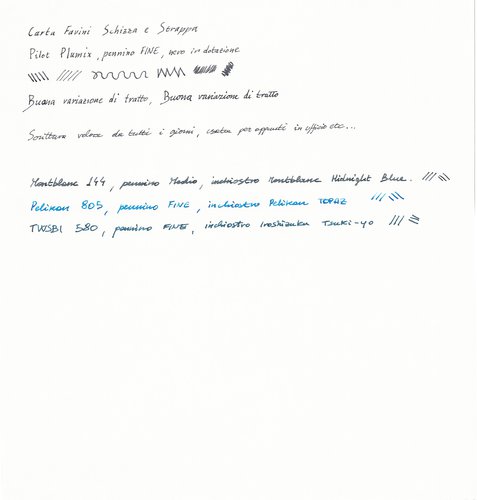 Carta Favini Schizza e Strappa
Pilot Plumix, pennino FINE, nero in dotazione
Buona variazione di tratto, Buona variazione di tratto
Scrittura veloce da tutti i giorni, usata per appunti in ufficio etc...
Montblanc 144, pennino Medio, inchiostro Montblanc Midnight Blue.
Pelikan 805, pennino FINE, inchiostro Pelikan TOPAZ
TWSBI 580, pennino FINE, inchiostro Iroshizuku Tsuki-yo